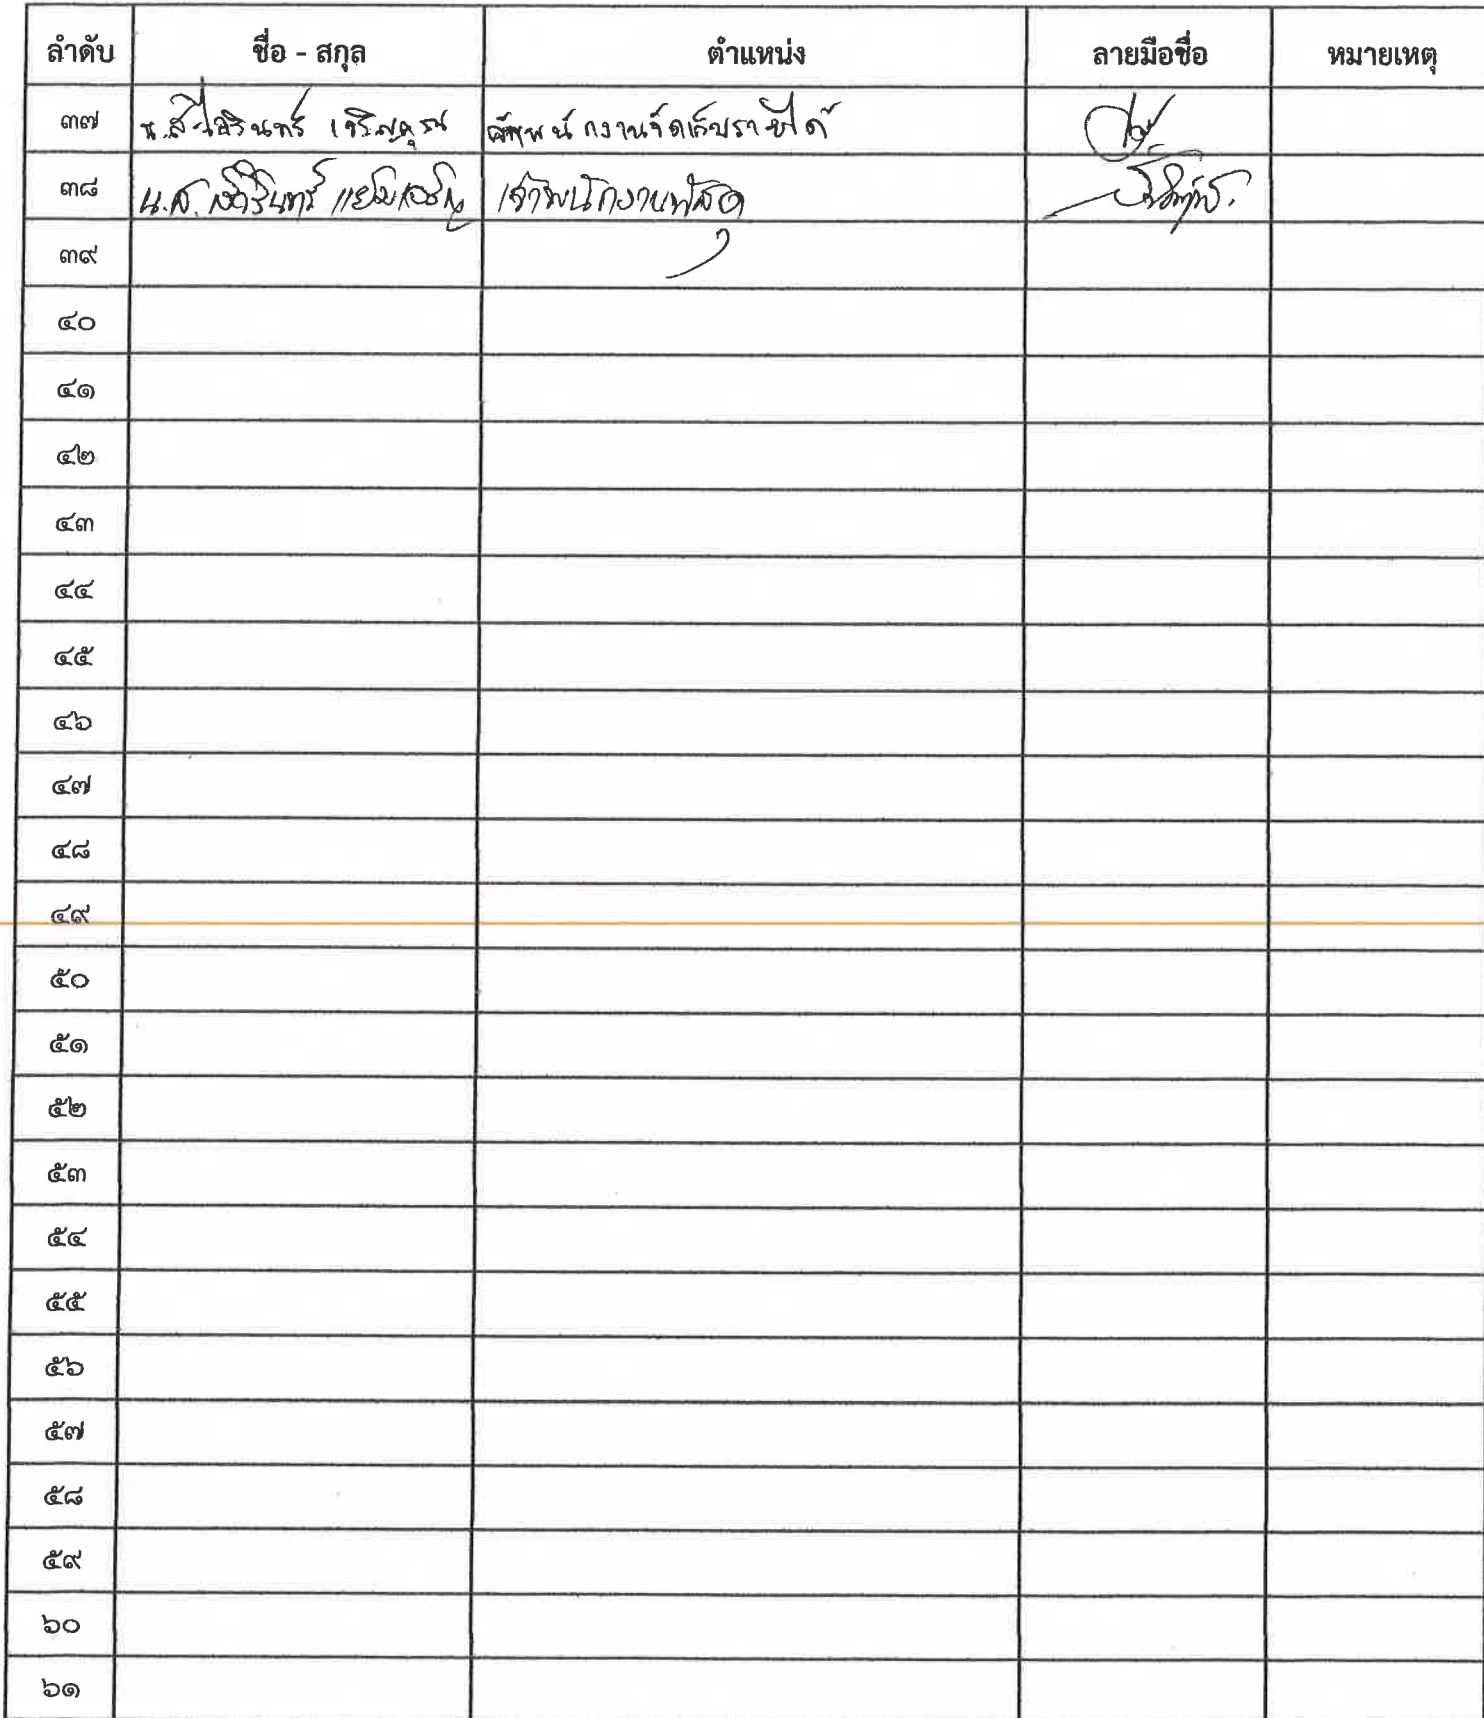 ลำดับ ชื่อ - สกุล ตำแหน่ง ลายมือชื่อ หมายเหตุ
๓๗ น.ส. เจริญคุณ พนักงานจัดเก็บรายได้
๓๘ น.ส. เจ้าพนักงานพัสดุ
๓๙
๔๐
๔๑
๔๒
๔๓
๔๔
๔๕
๔๖
๔๗
๔๘
๔๙
๕๐
๕๑
๕๒
๕๓
๕๔
๕๕
๕๖
๕๗
๕๘
๕๙
๖๐
๖๑